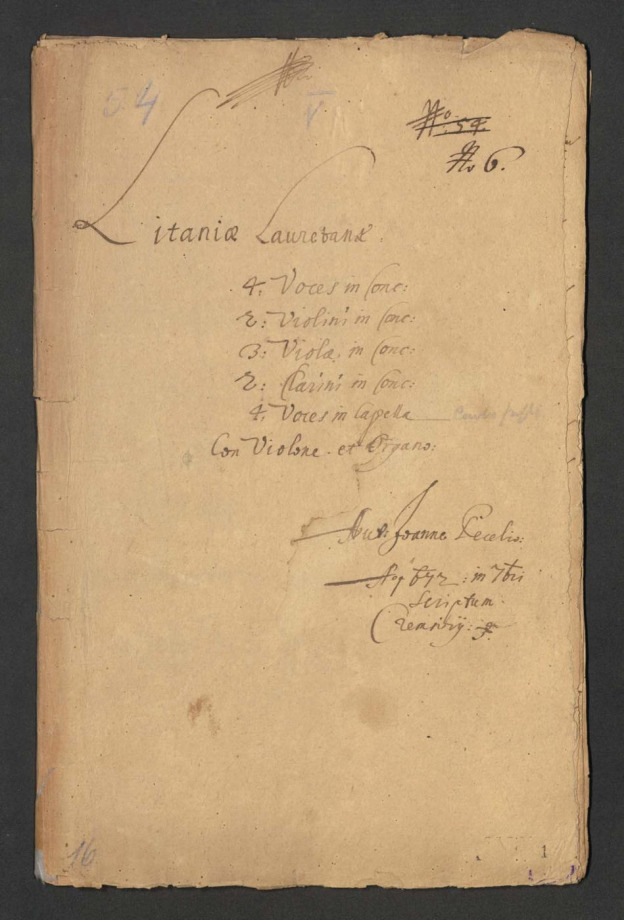 54
V
No. 54.
No 6.
Litaniæ Lauretanæ.
4. Voces in Conc:
2: Violini in Conc:
3: Violæ. in Conc:
2: Clarini in Conc:
4. Voces in Capella
Con Violone. et Organo:
Aut: Joanne Pecelio:
672 : in 7bri
Scriptum
Cremsirij:
16
1